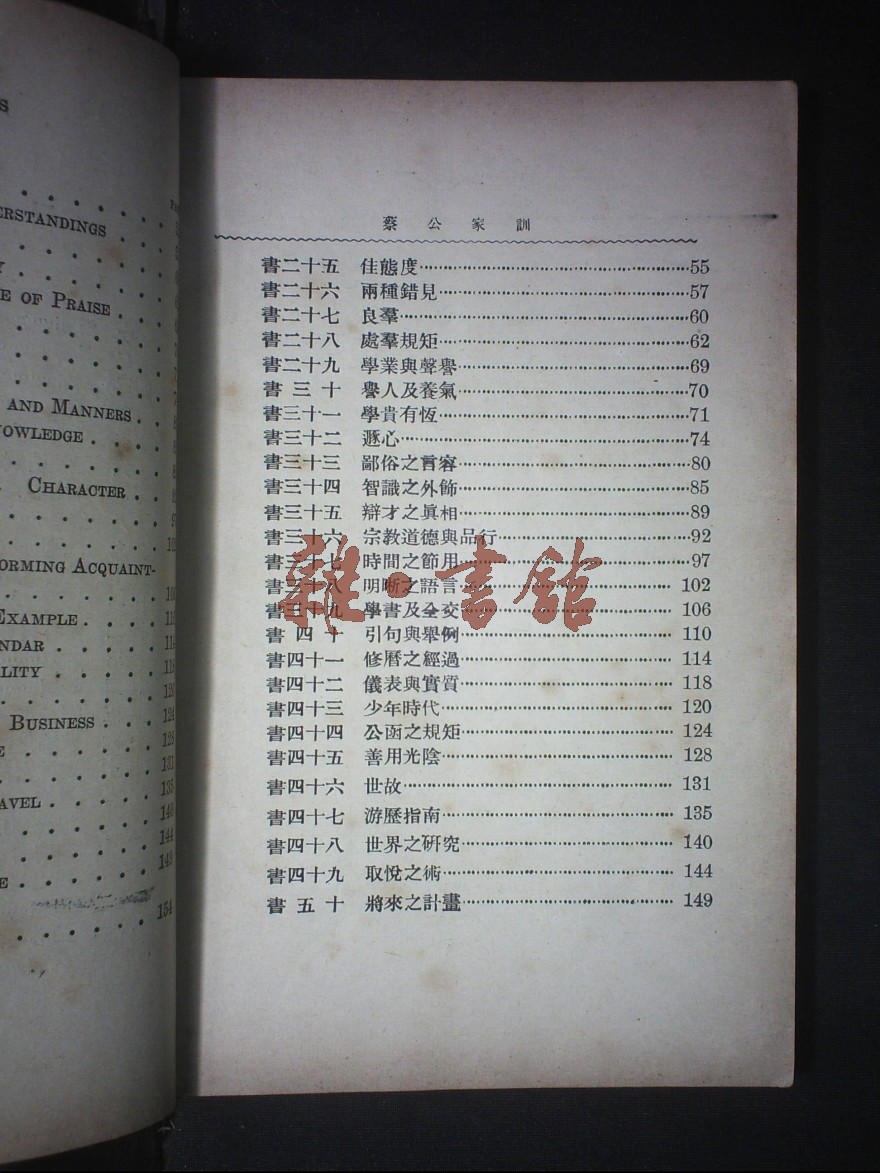 S
ERSTANDINGS
Y
E OF PRAISE
AND MANNERS
NOWLEDGE
CHARACTER
ORMING ACQUAINT-
EXAMPLE
NDAR
LITY
120
BUSINESS 124
E 128
131
AVEL 135
140
144
149
E
154
蔡公家訓
書二十五 佳態度 55
書二十六 兩種錯見 57
書二十七 良羣 60
書二十八 處羣規矩 62
書二十九 學業與聲譽 69
書三十 譽人及養氣 70
書三十一 學貴有恆 71
書三十二 遜心 74
書三十三 鄙俗之言容 80
書三十四 智識之外飾 85
書三十五 辯才之眞相 89
書三十六 宗教道德與品行 92
書三十七 時間之節用 97
書三十八 明晰之語言 102
書三十九 學書及全交 106
書四十 引句與舉例 110
書四十一 修曆之經過 114
書四十二 儀表與實質 118
書四十三 少年時代 120
書四十四 公函之規矩 124
書四十五 善用光陰 128
書四十六 世故 131
書四十七 游歷指南 135
書四十八 世界之硏究 140
書四十九 取悅之術 144
書五十 將來之計畫 149
雜·書館